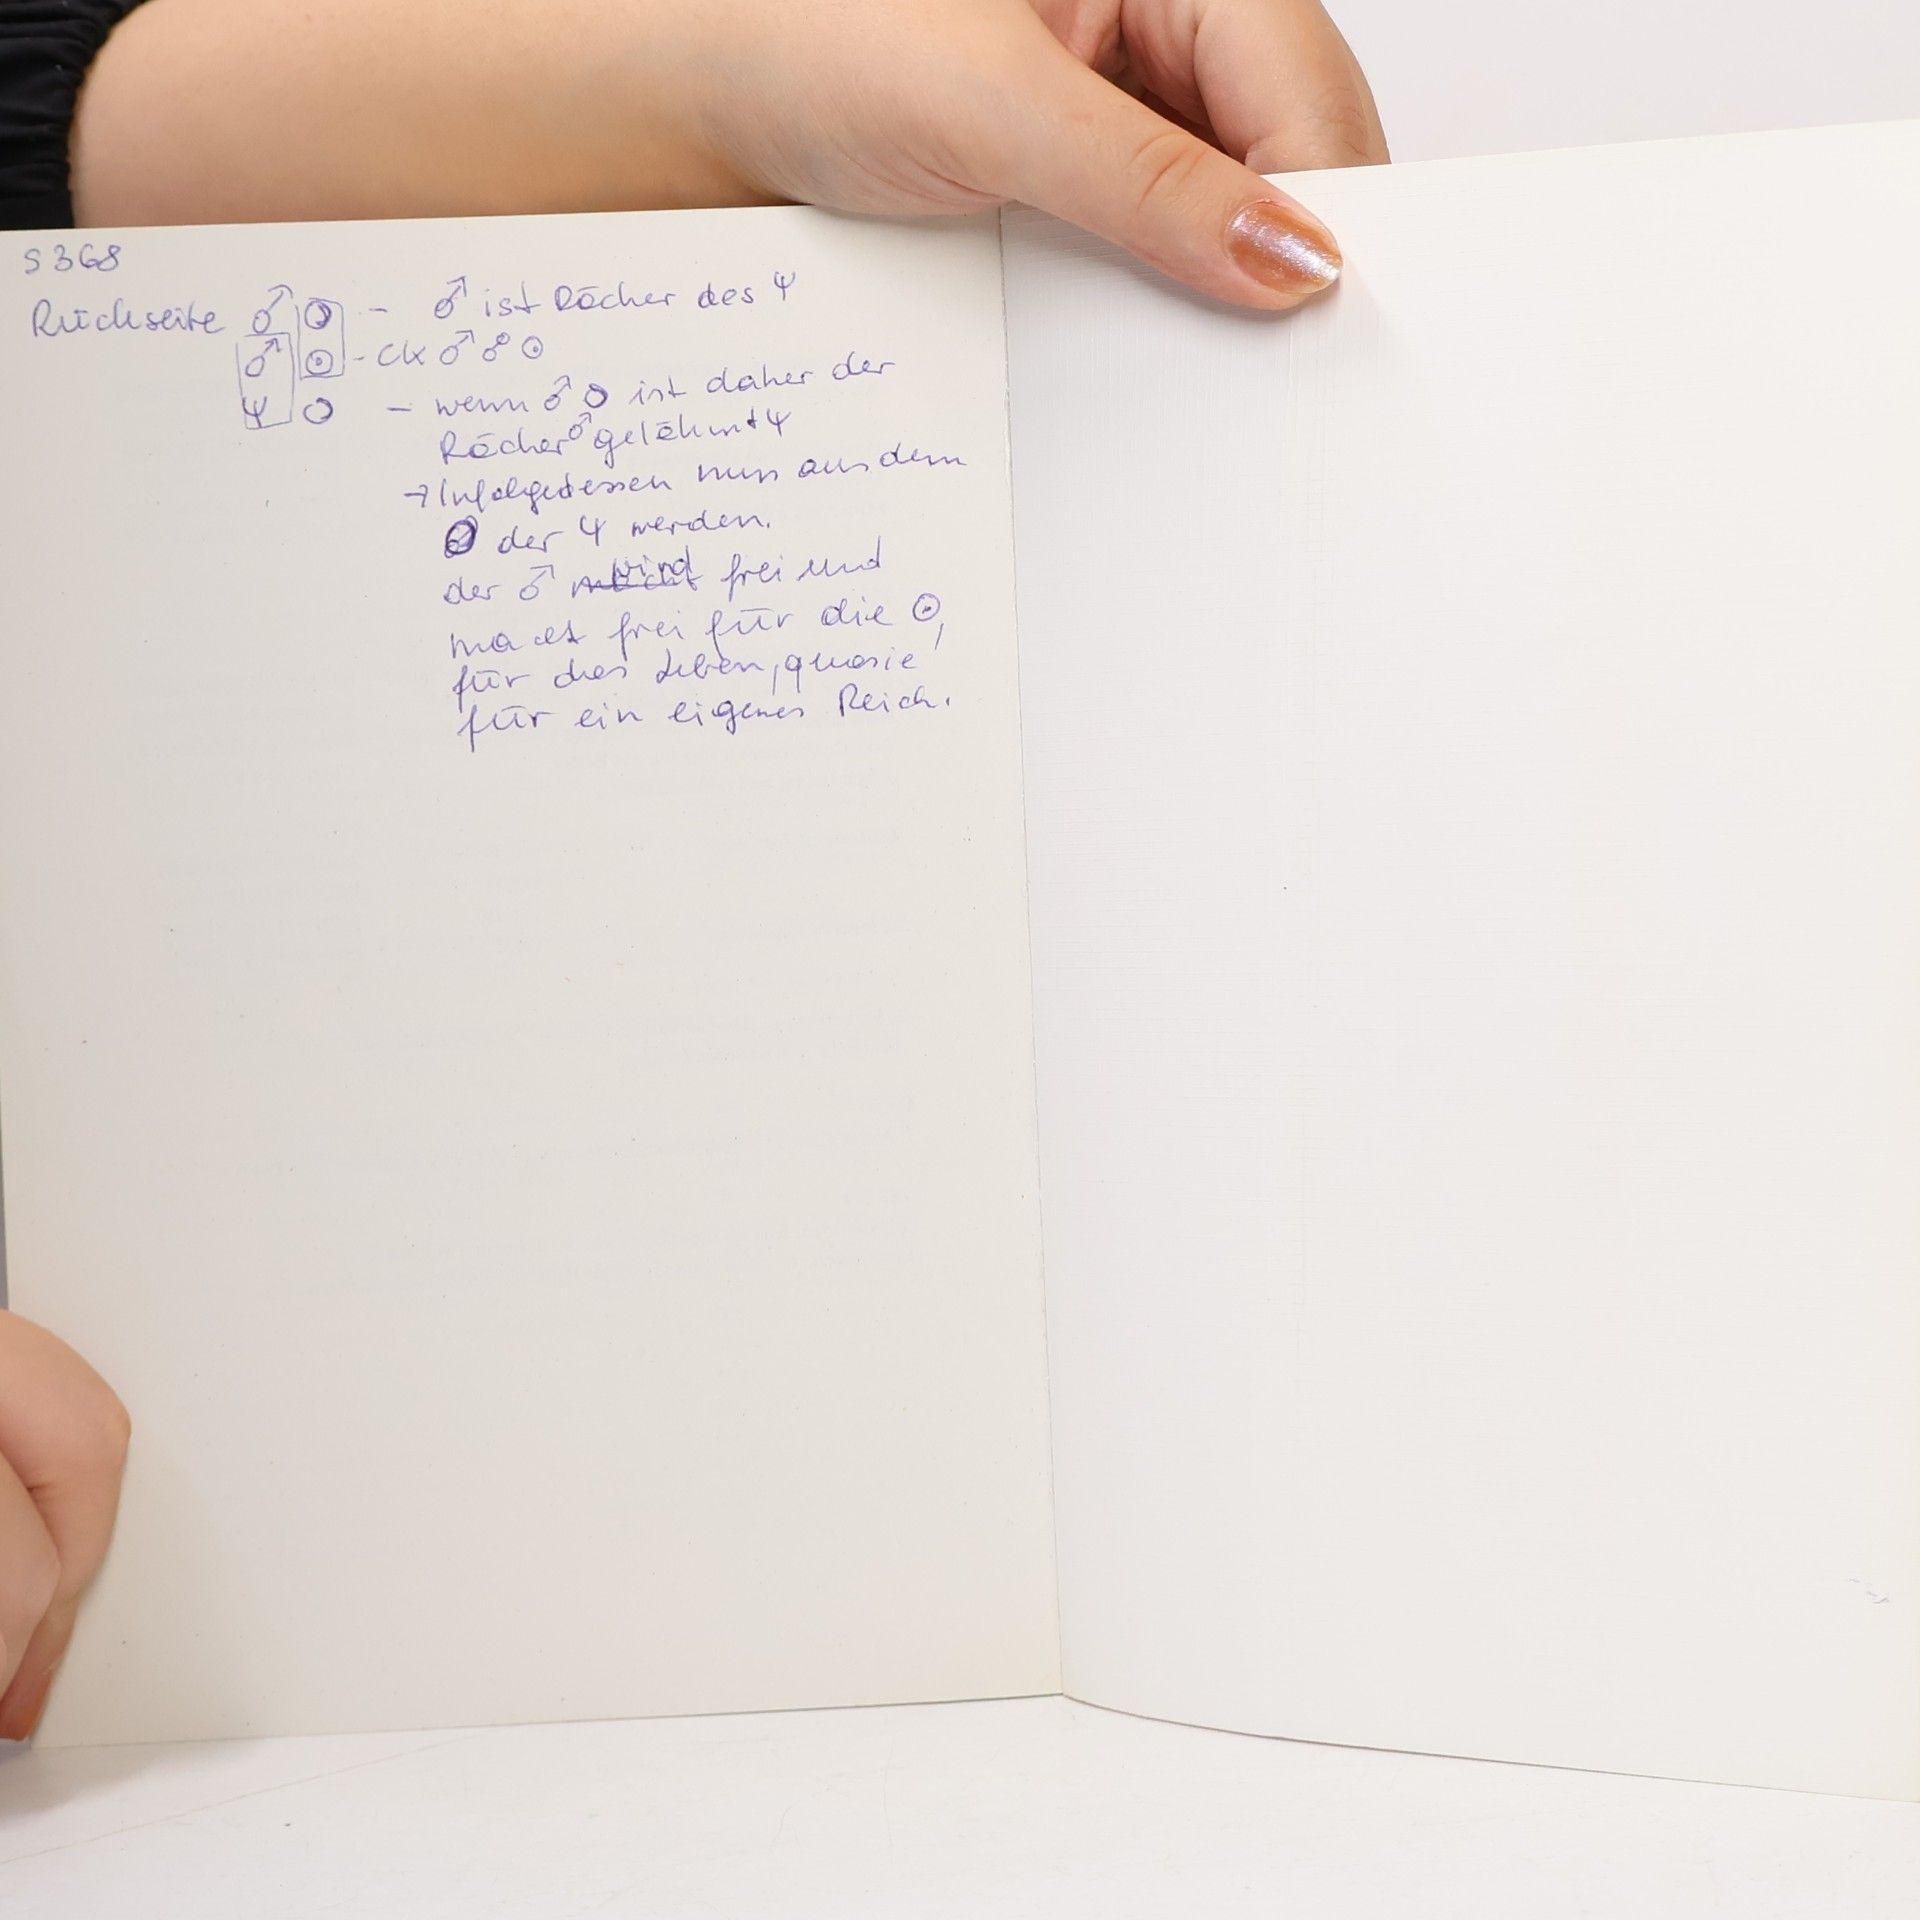 S 368
Rückseite ♂ ☽ – ♂ ist Rächer des Ψ
♂ ☉ – ♂ ☍ ☉
Ψ ☽ – wenn ♂ ☽ ist daher der
Rächer ♂ gelähmt Ψ
→ Infolgedessen muss aus dem
☽ der Ψ werden.
der ♂ wird frei und
macht frei für die ☉,
für das Leben, quasie
für ein eigenes Reich.